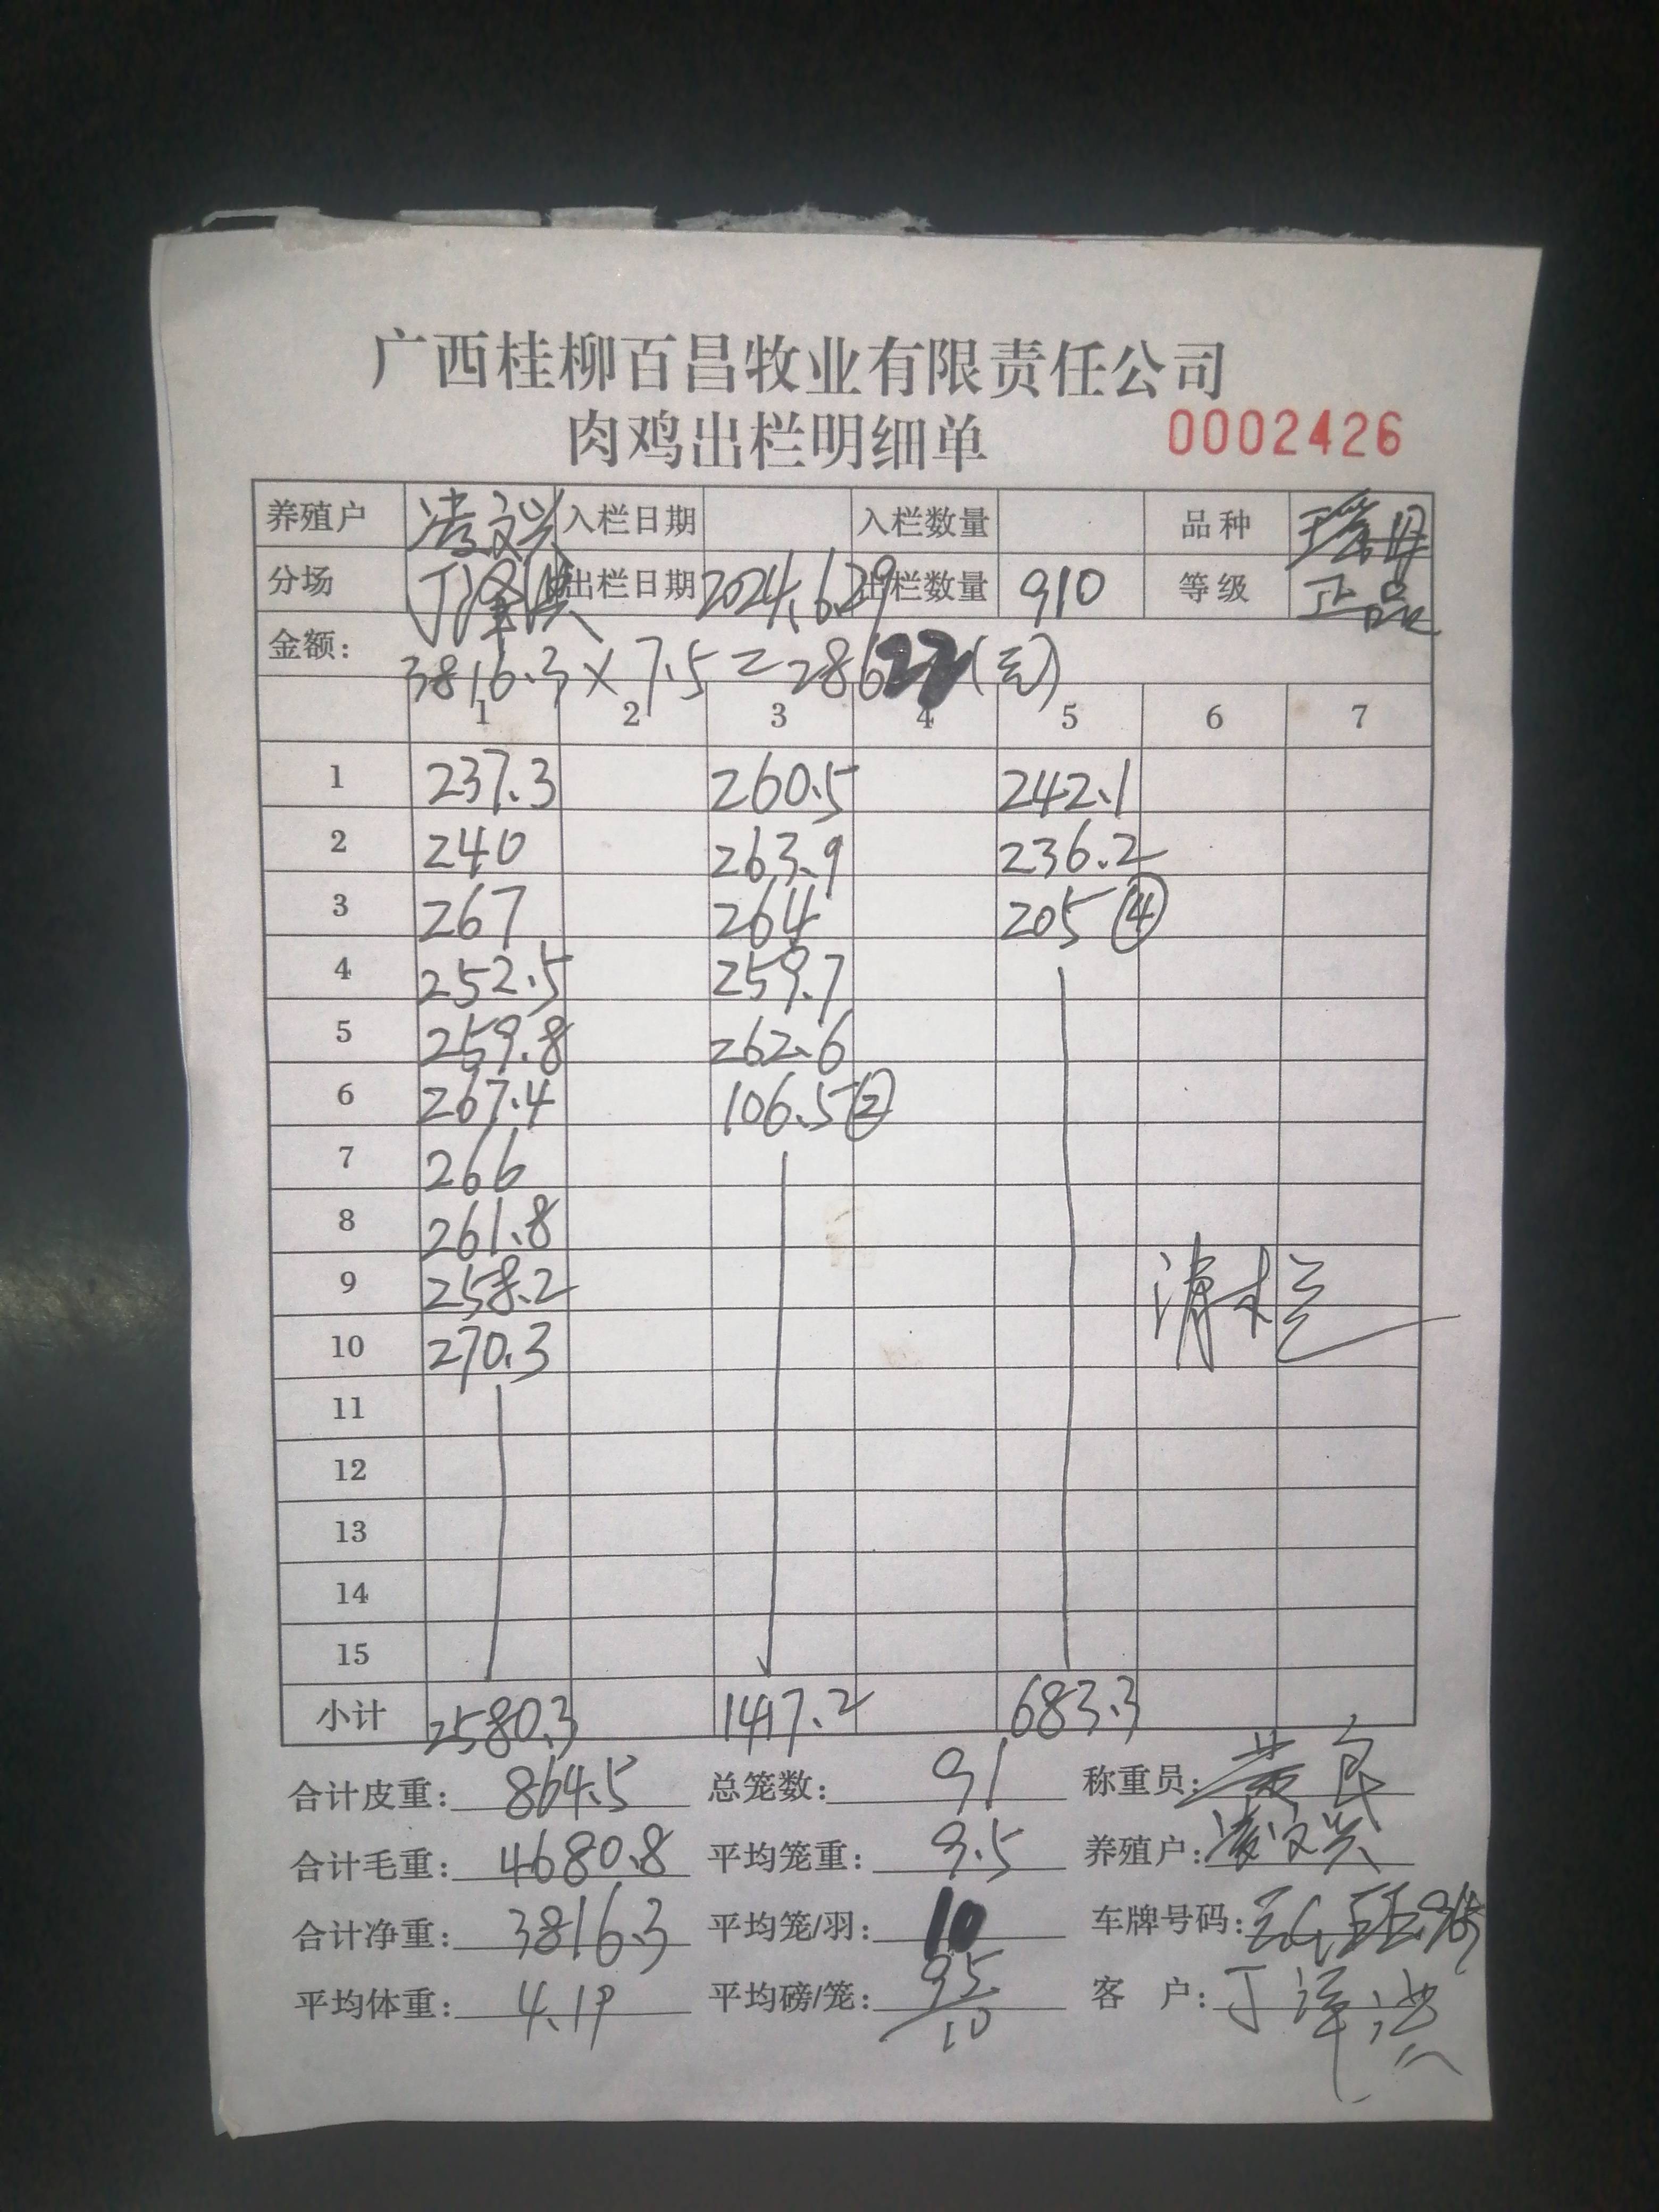 广西桂柳百昌牧业有限责任公司
肉鸡出栏明细单 0002426
养殖户 凌文兴 入栏日期 入栏数量 品种
分场 丁泽洪 出栏日期 2024.6.29 出栏数量 910 等级 正品
金额: 3816.3×7.5=28622(元)
1 2 3 4 5 6 7
1 237.3 260.5 242.1
2 240 263.9 236.2
3 267 264 205 ④
4 252.5 259.7
5 259.8 262.6
6 267.4 106.5 ②
7 266
8 261.8
9 258.2 清栏
10 270.3
11
12
13
14
15
小计 2580.3 1417.2 683.3
合计皮重: 864.5 总笼数: 91 称重员:
合计毛重: 4680.8 平均笼重: 9.5 养殖户: 凌文兴
合计净重: 3816.3 平均笼/羽: 10 车牌号码:
平均体重: 4.19 平均磅/笼: 95/10 客 户: 丁泽洪